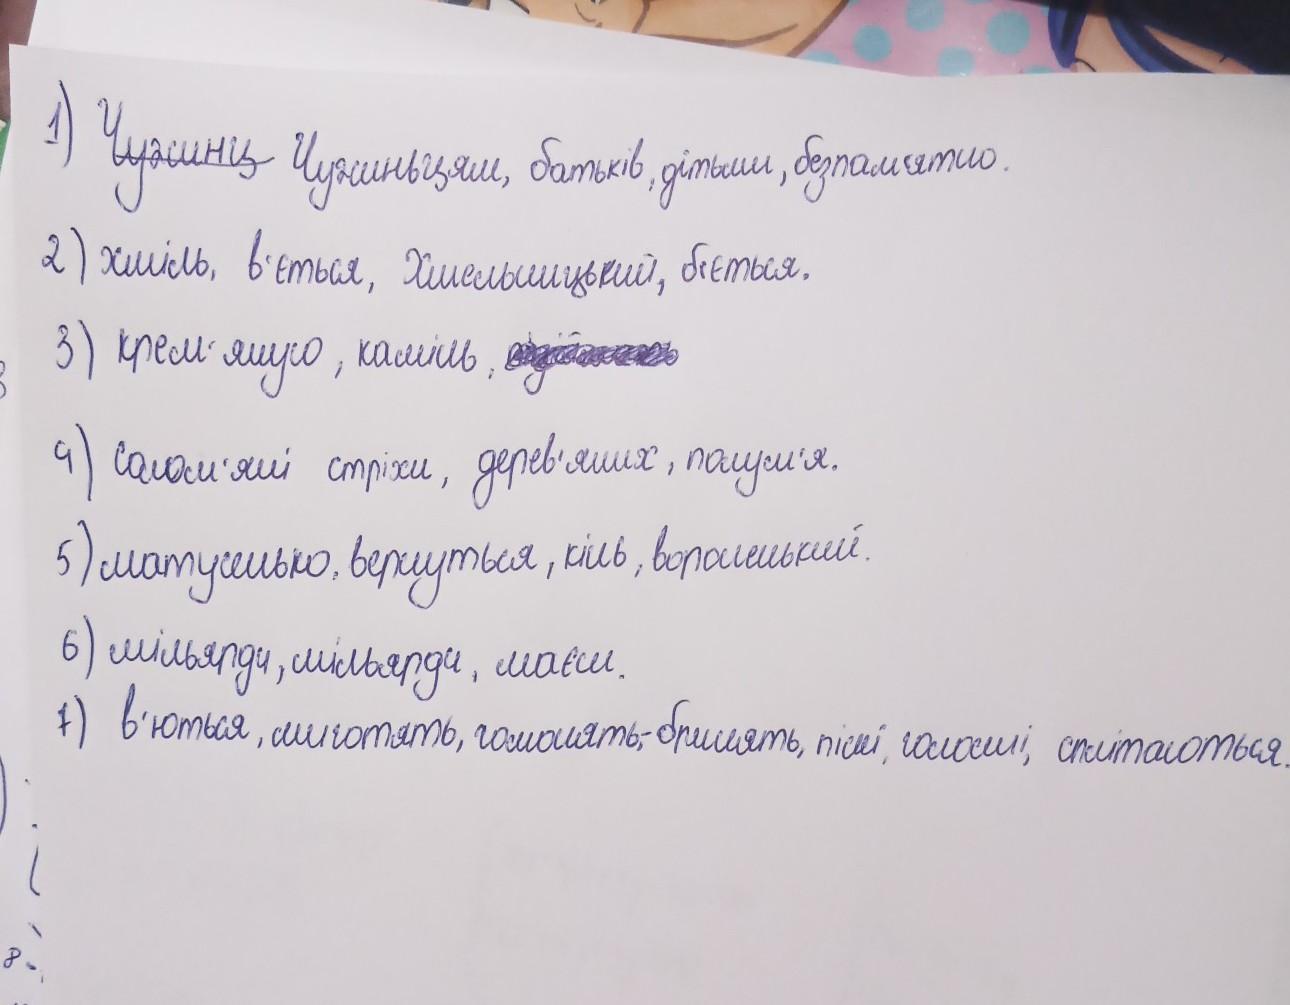 1) Чужинц Чужиньцям, батьків, дітьми, безпам'ятно.
2) хміль, в'ється, Хмельницький, б'ється.
3) крем'яную, камінь,
4) Солом'яні стріхи, дерев'яних, полум'я.
5) матусенько, вернуться, кінь, вороненький.
6) мільярди, мільярди, маєш.
7) в'ються, миготять, гомонять,-бринять, пісні, голосні, сплітаються.